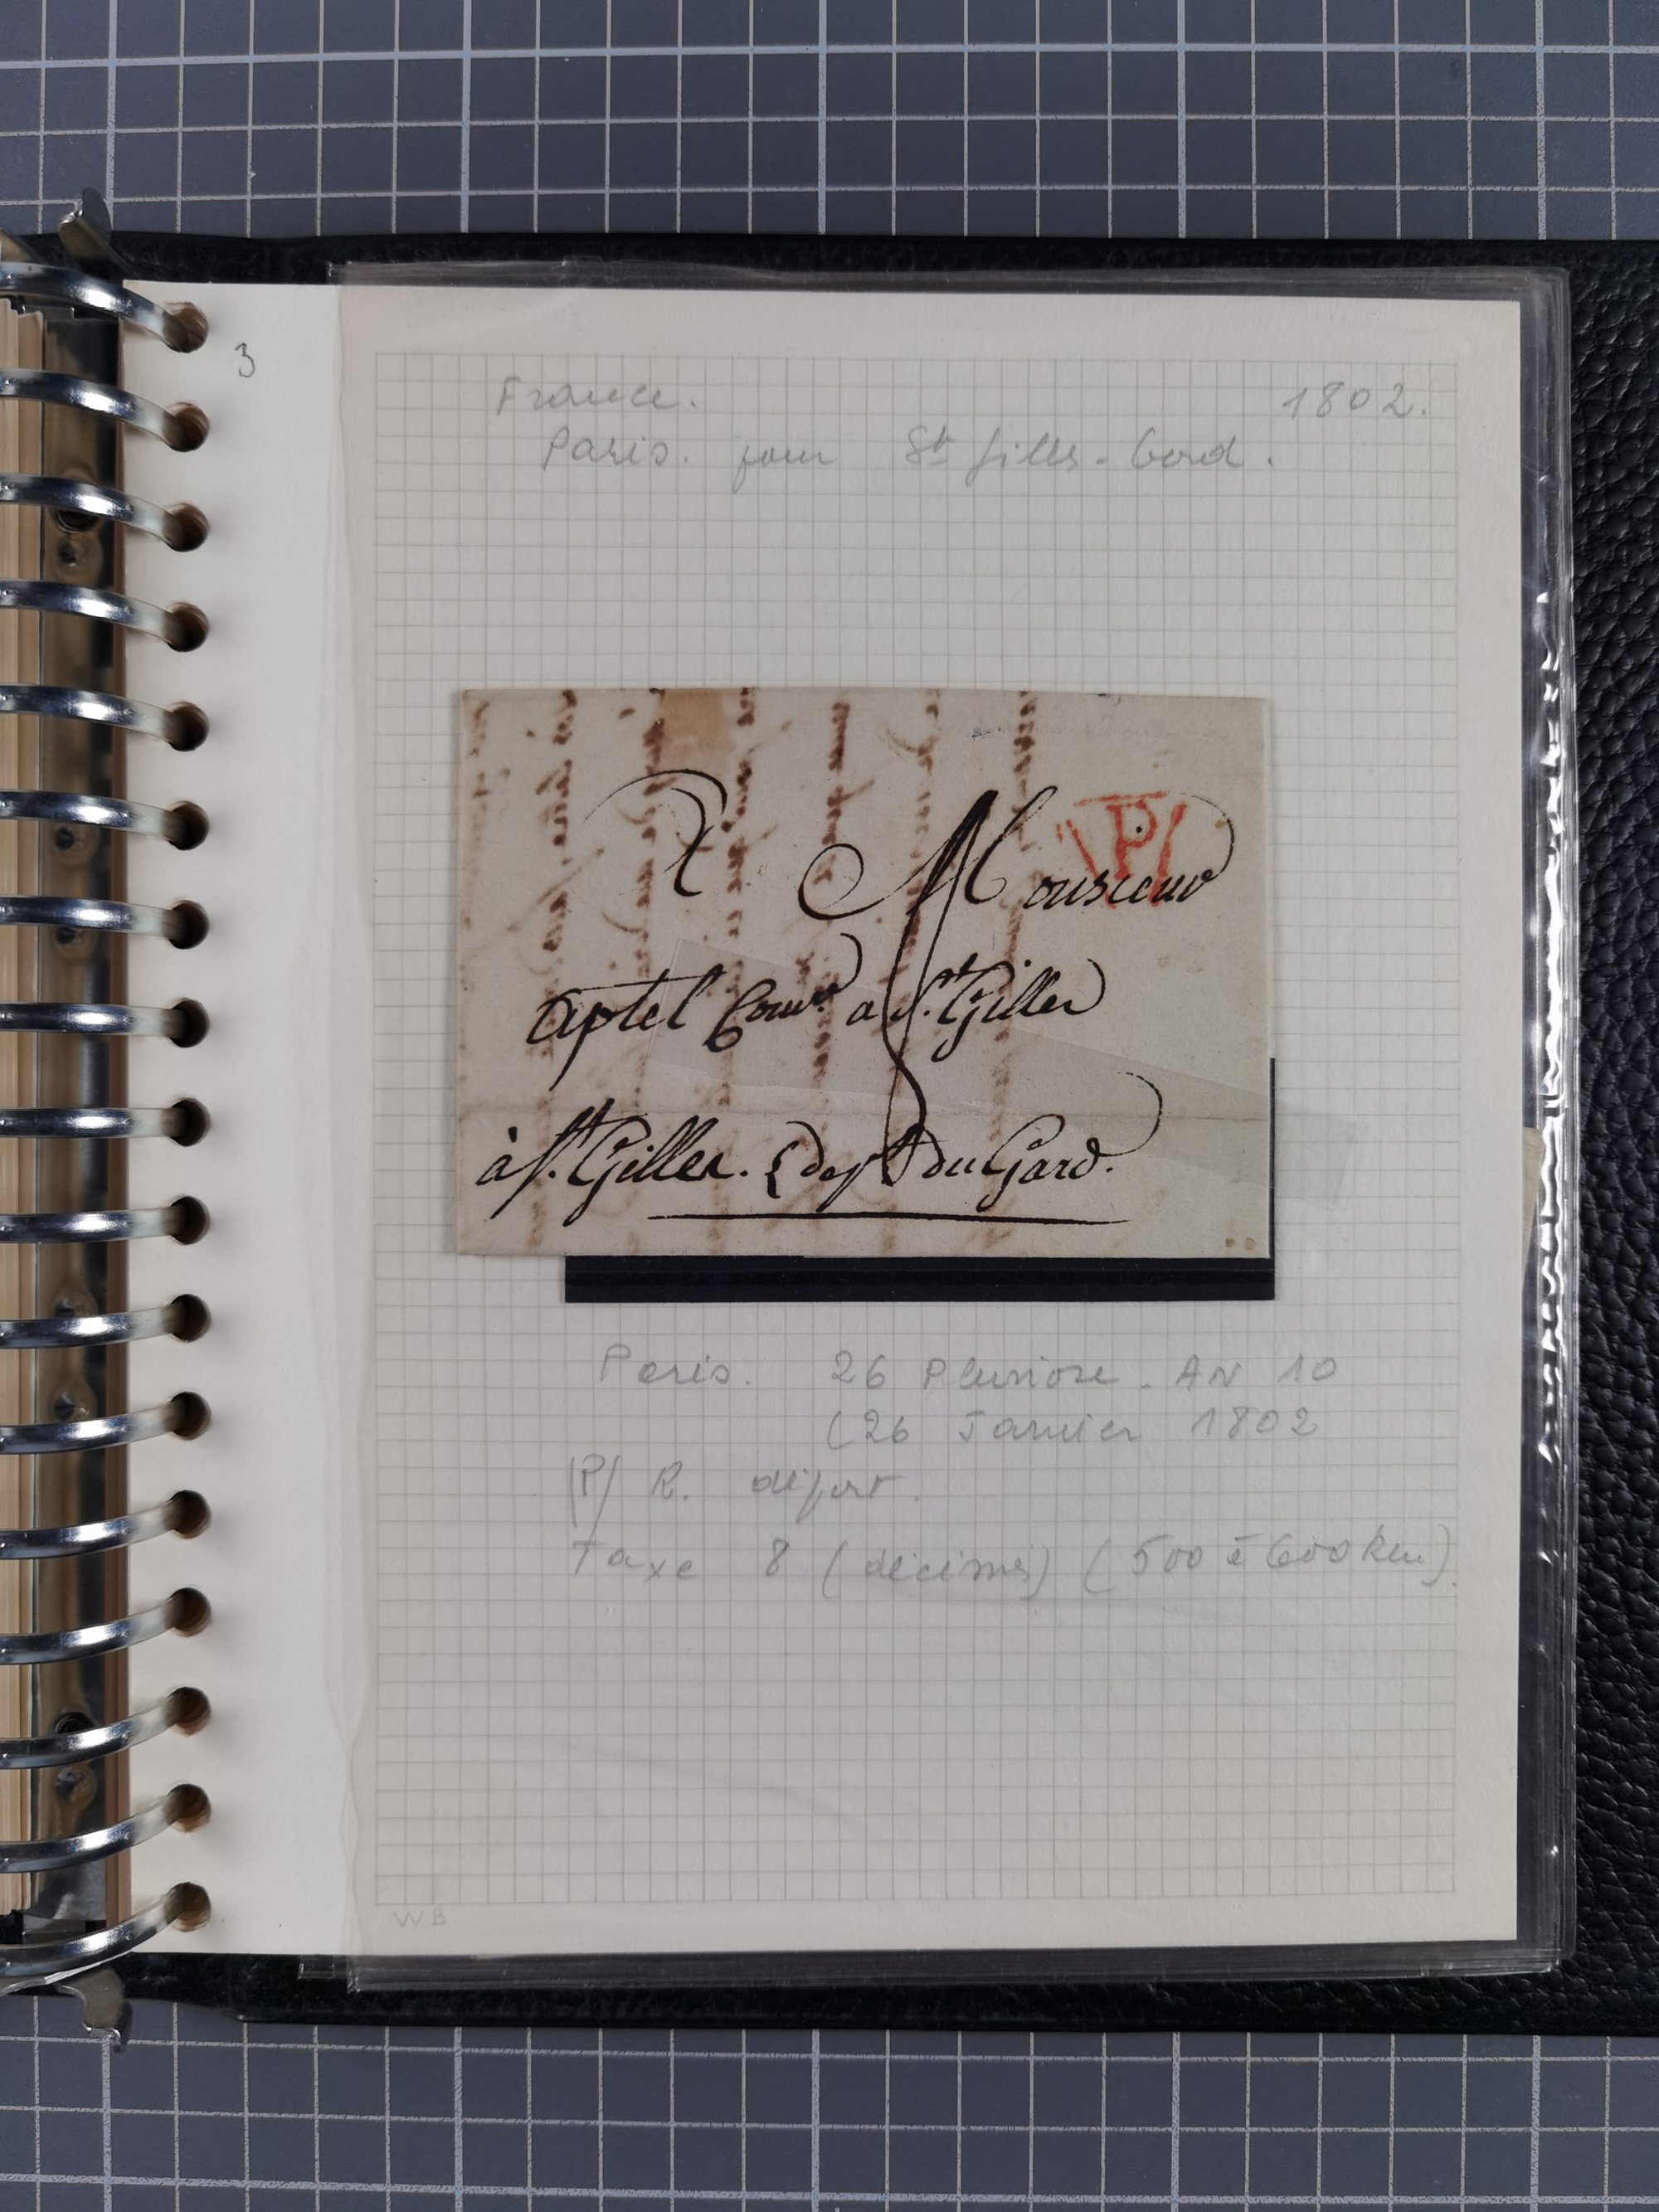 3
France. 1802.
Paris. pour St Gilles-Gard.
P
A Monsieur
Aptel Comre a St. Gilles
à St. Gilles. (dept du Gard.
8
Paris. 26 Pluviose. AN 10
(26 Janvier 1802
|P| R. départ.
Taxe 8 (décimes) (500 à 600 km).
WB